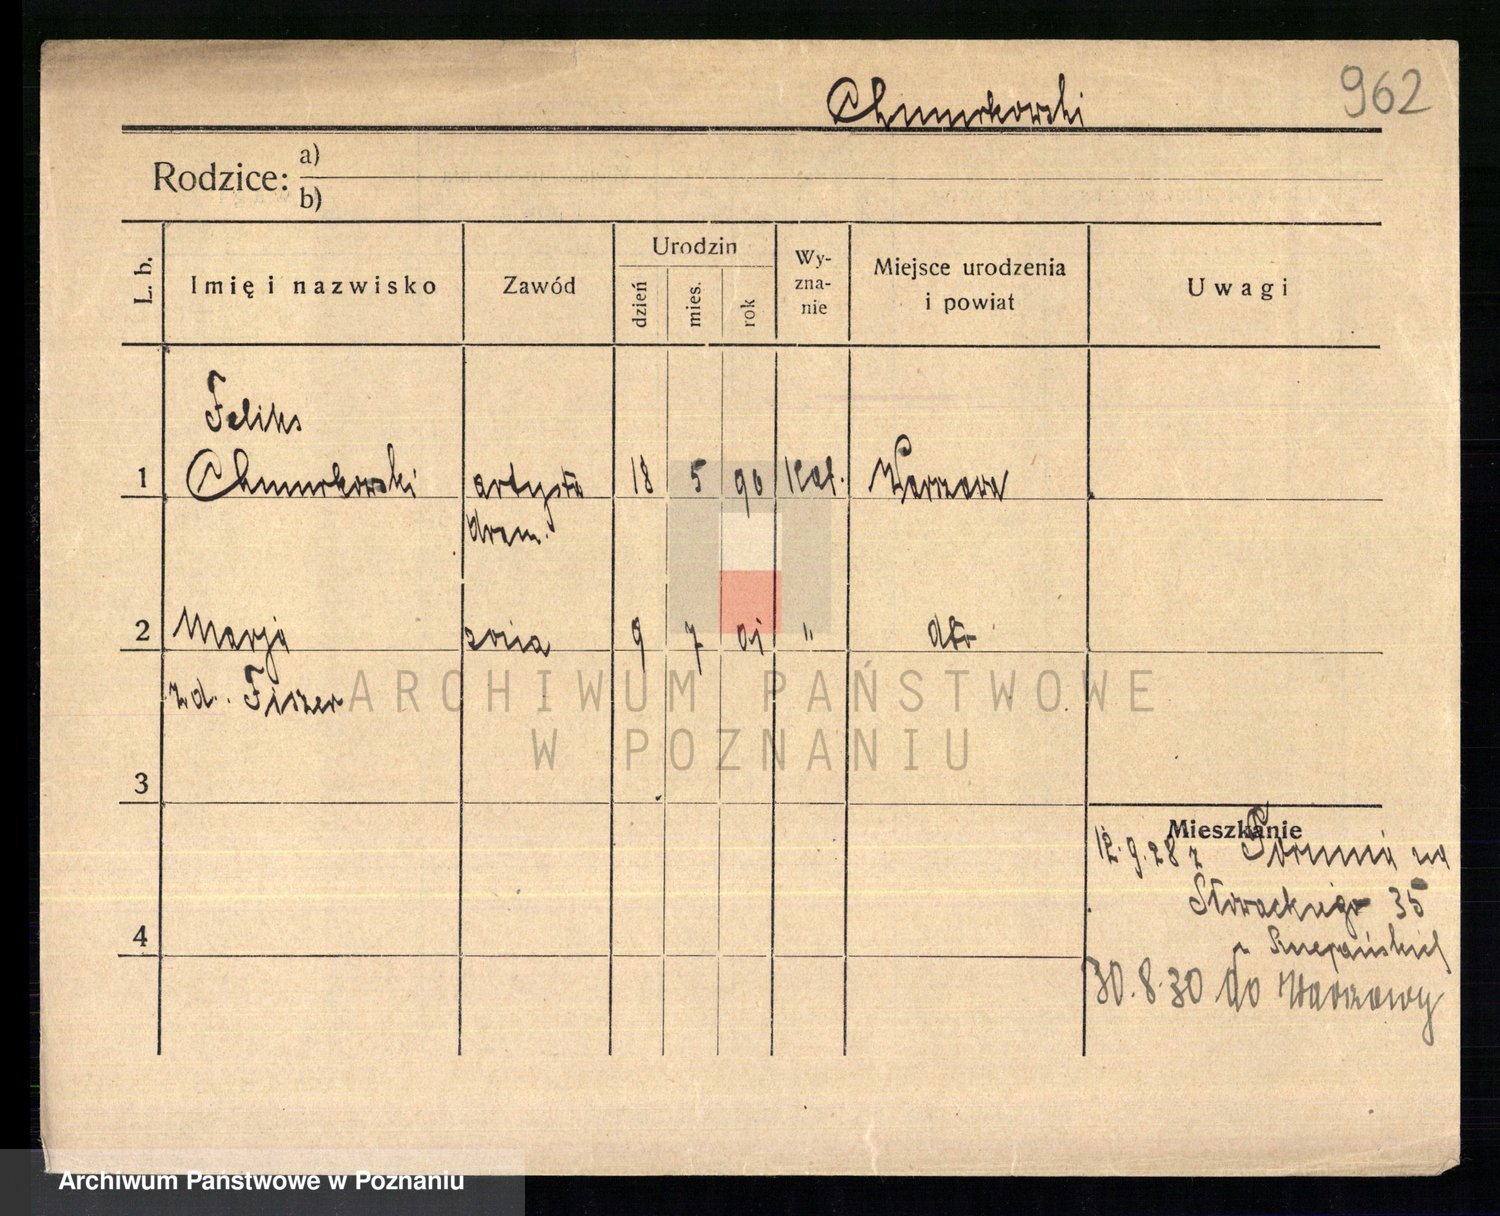 Chmurkowski
962
Rodzice:
a)
b)
L. b.
Imię i nazwisko
Zawód
Urodzin
dzień
mies.
rok
Wy-
zna-
nie
Miejsce urodzenia
i powiat
Uwagi
Feliks
1 Chmurkowski artysta 18 5 90 Kat. Warszawa
dram.
2 Marja żona 9 7 01 " dto
zd. Fiszer
ARCHIWUM PAŃSTWOWE
W POZNANIU
3
Mieszkanie
12.9.28 z Torunia na
Słowackiego 35
4
30.8.30 do Warszawy
Archiwum Państwowe w Poznaniu